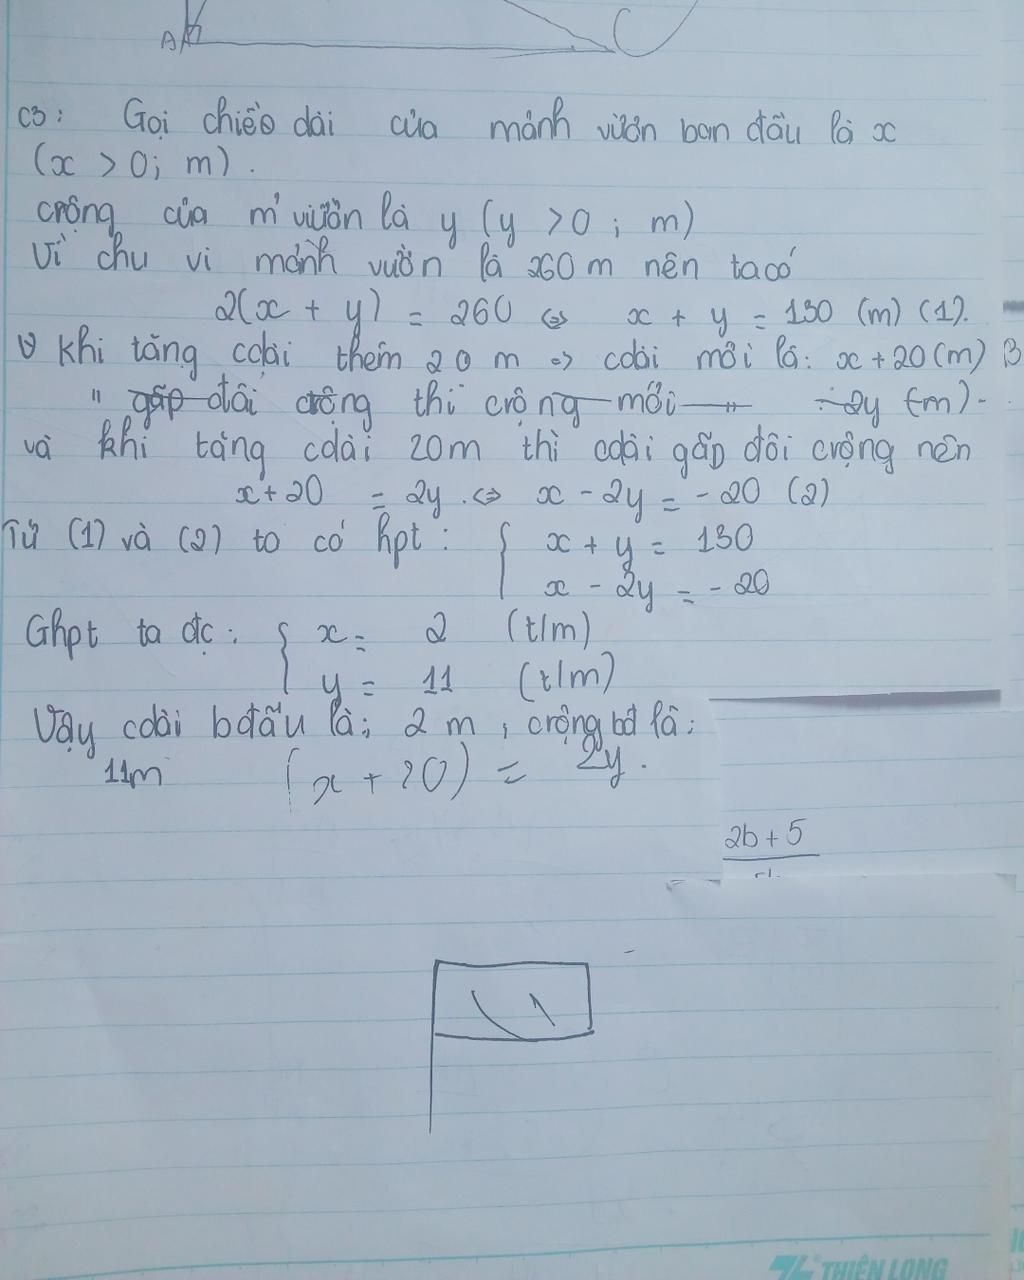 A
C
C3: Gọi chiều dài của mảnh vườn ban đầu là x
(x > 0; m).
crộng của m' vườn là y (y > 0; m)
Vì chu vi mảnh vườn là 260 m nên ta có
2(x + y) = 260 ⇔ x + y = 130 (m) (1).
Khi tăng cdài thêm 20 m => cdài mới là: x + 20 (m)
" gấp đôi crộng thì crộng mới 2y (m)
và khi tăng cdài 20m thì cdài gấp đôi crộng nên
x + 20 = 2y ⇔ x - 2y = - 20 (2)
Từ (1) và (2) ta có hpt: { x + y = 130
x - 2y = - 20
Ghpt ta đc: { x = 2 (t/m)
y = 11 (t/m)
Vậy cdài bđầu là: 2 m, crộng bđ là:
11m (x + 20) = 2y.
2b + 5
THIÊN LONG